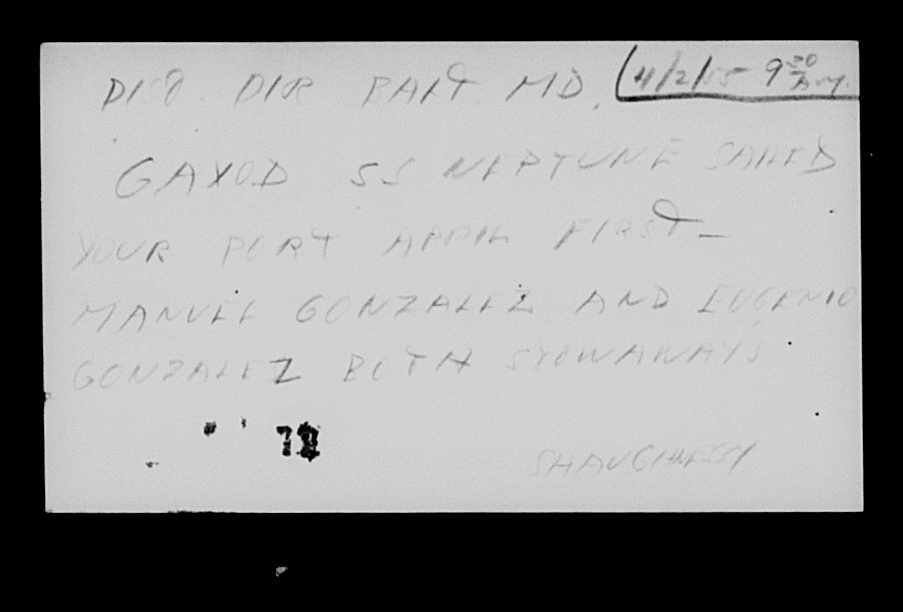 DIS DIR BALT MD. 4/2/55 9 30 A.M.
GAXOD SS NEPTUNE SAILED
YOUR PORT APRIL FIRST -
MANUEL GONZALEZ AND EUGENIO
GONZALEZ BOTH STOWAWAYS
SHAUGHNESSY